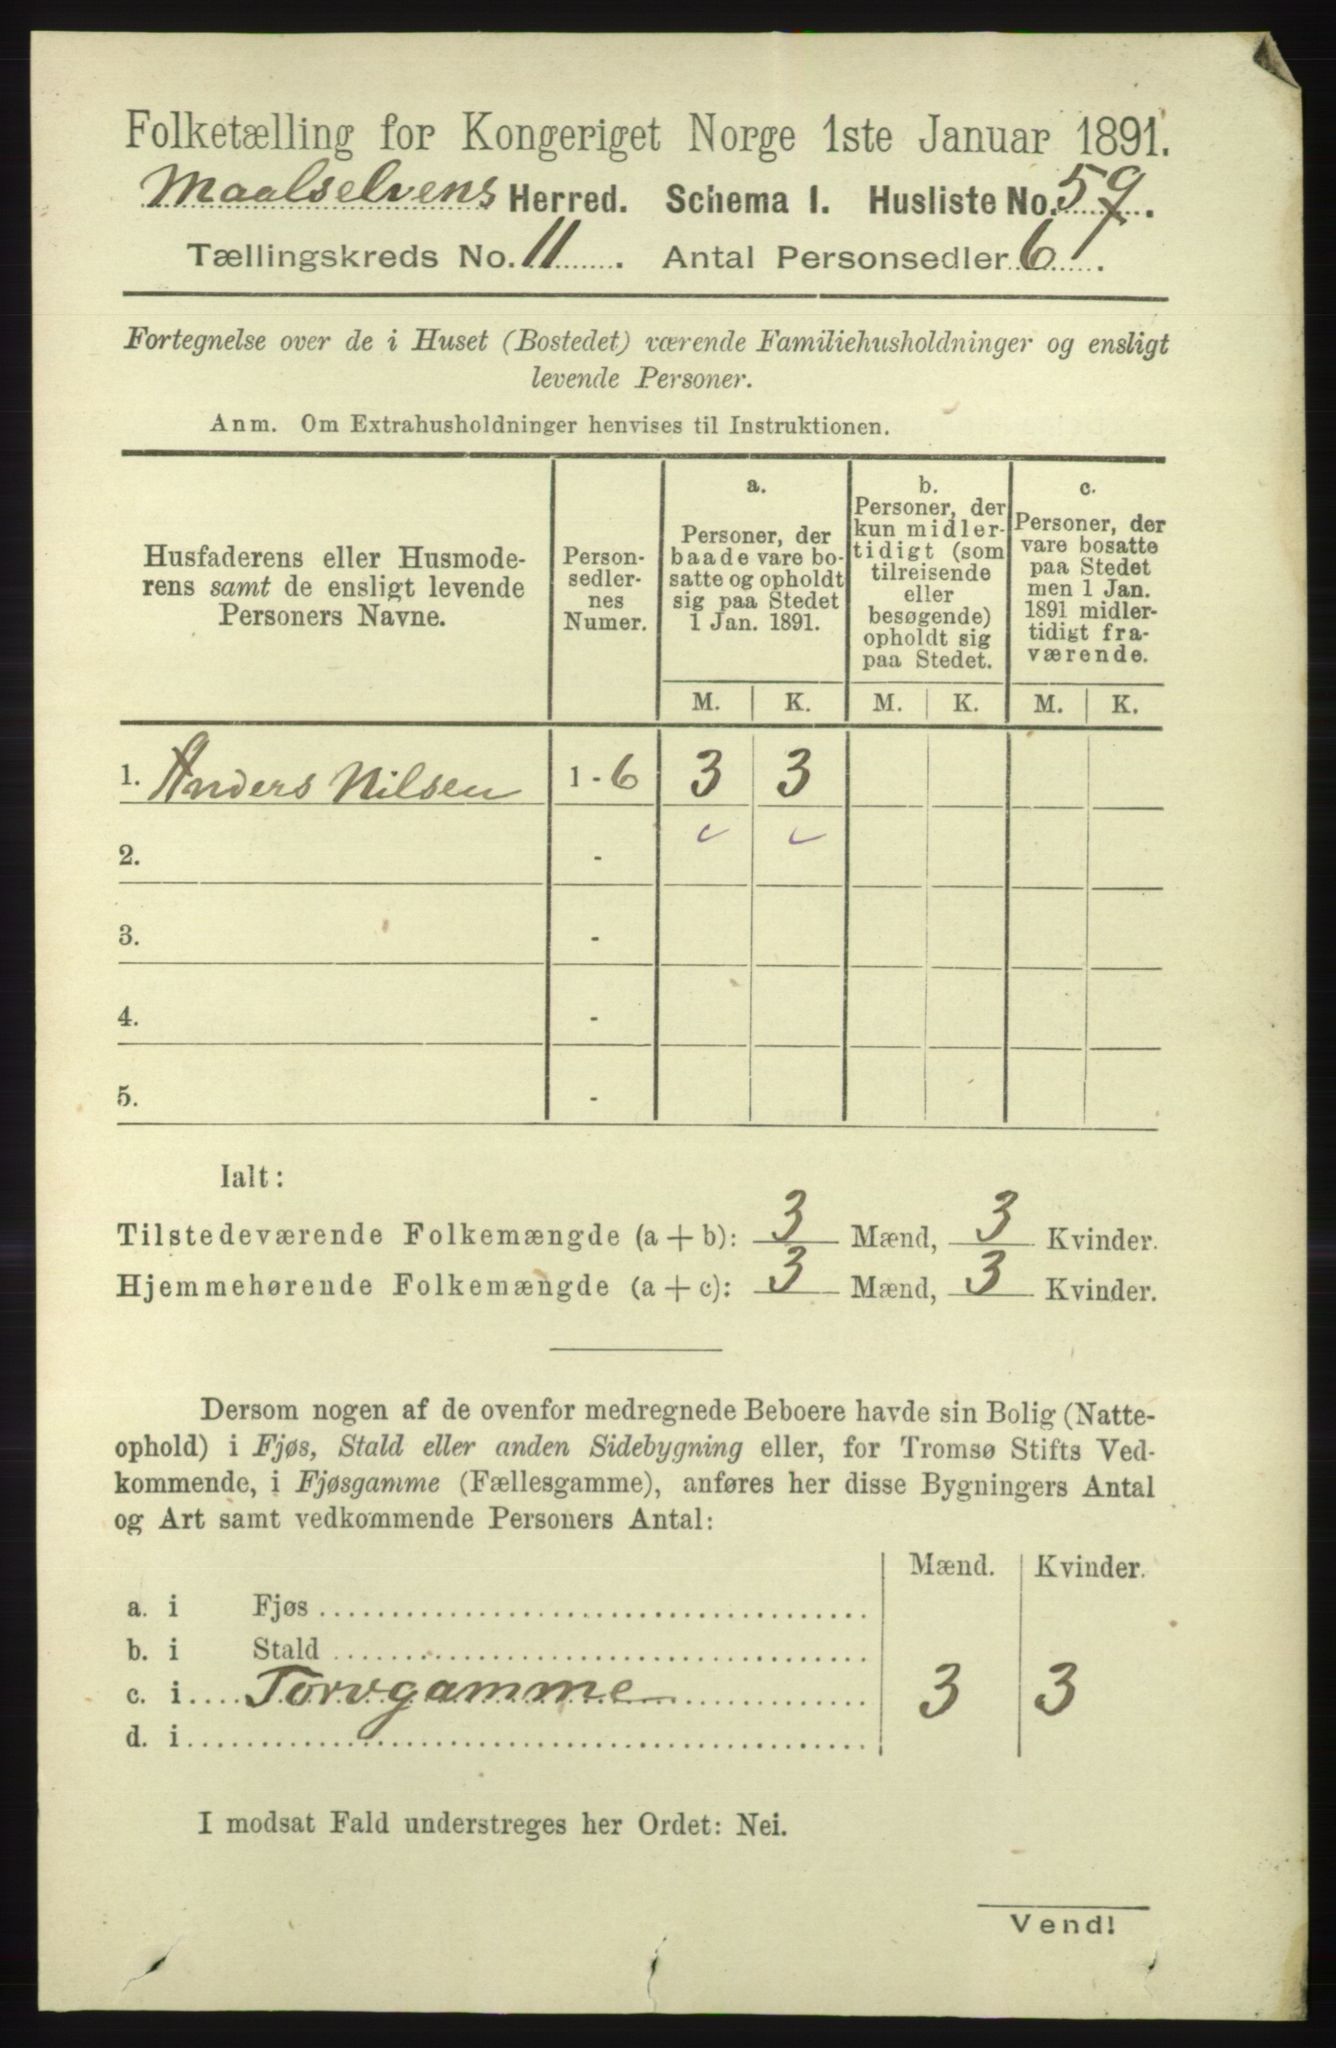 Folketælling for Kongeriget Norge 1ste Januar 1891.
Maalselvens Herred. Schema I. Husliste No. 59.
Tællingskreds No. 11. Antal Personsedler 6.
Fortegnelse over de i Huset (Bostedet) værende Familiehusholdninger og ensligt
levende Personer.
Anm. Om Extrahusholdninger henvises til Instruktionen.
Husfaderens eller Husmode-
rens samt de ensligt levende
Personers Navne.
Person-
sedler-
nes
Numer.
a.
Personer, der
baade vare bo-
satte og opholdt
sig paa Stedet
1 Jan. 1891.
b.
Personer, der
kun midler-
tidigt (som
tilreisende
eller
besøgende)
opholdt sig
paa Stedet.
c.
Personer, der
vare bosatte
paa Stedet
men 1 Jan.
1891 midler-
tidigt fra-
værende.
M. K. M. K. M. K.
1. Anders Nilsen 1 - 6 3 3
2. -
3. -
4. -
5. -
Ialt:
Tilstedeværende Folkemængde (a + b): 3 Mænd, 3 Kvinder.
Hjemmehørende Folkemængde (a + c): 3 Mænd, 3 Kvinder.
Dersom nogen af de ovenfor medregnede Beboere havde sin Bolig (Natte-
ophold) i Fjøs, Stald eller anden Sidebygning eller, for Tromsø Stifts Ved-
kommende, i Fjøsgamme (Fællesgamme), anføres her disse Bygningers Antal
og Art samt vedkommende Personers Antal:
Mænd. Kvinder.
a. i Fjøs
b. i Stald
c. i Torvgamme 3 3
d. i
I modsat Fald understreges her Ordet: Nei.
Vend!